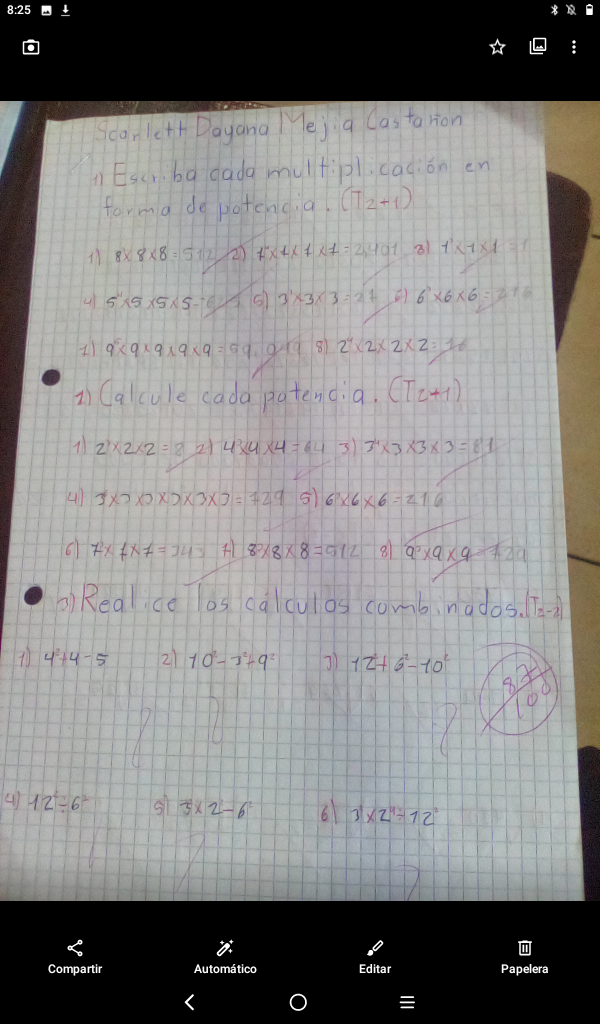 8:25
Scarlett Dayana Mejia Castañon
1) Escriba cada multiplicación en
forma de potencia. (T2+1)
1) 8×8×8=512 2) 7×7×7×7=2,401 3) 1×1×1=1
4) 5×5×5×5= 5) 3×3×3=27 6) 6×6×6=216
7) 9×9×9×9×9=59,049 8) 2×2×2×2=16
2) Calcule cada potencia. (T2+1)
1) 2×2×2=8 2) 4×4×4=64 3) 3×3×3×3=81
4) 3×3×3×3×3×3=729 5) 6×6×6=216
6) 7×7×7=343 7) 8×8×8=512 8) 9×9×9=729
3) Realice los cálculos combinados. (T2-2)
1) 4²+4-5 2) 10²-3²+9² 3) 12²+6²-10²
87/100
4) 12²÷6² 5) 3²×2-6² 6) 3²×2⁴÷12²
Compartir Automático Editar Papelera